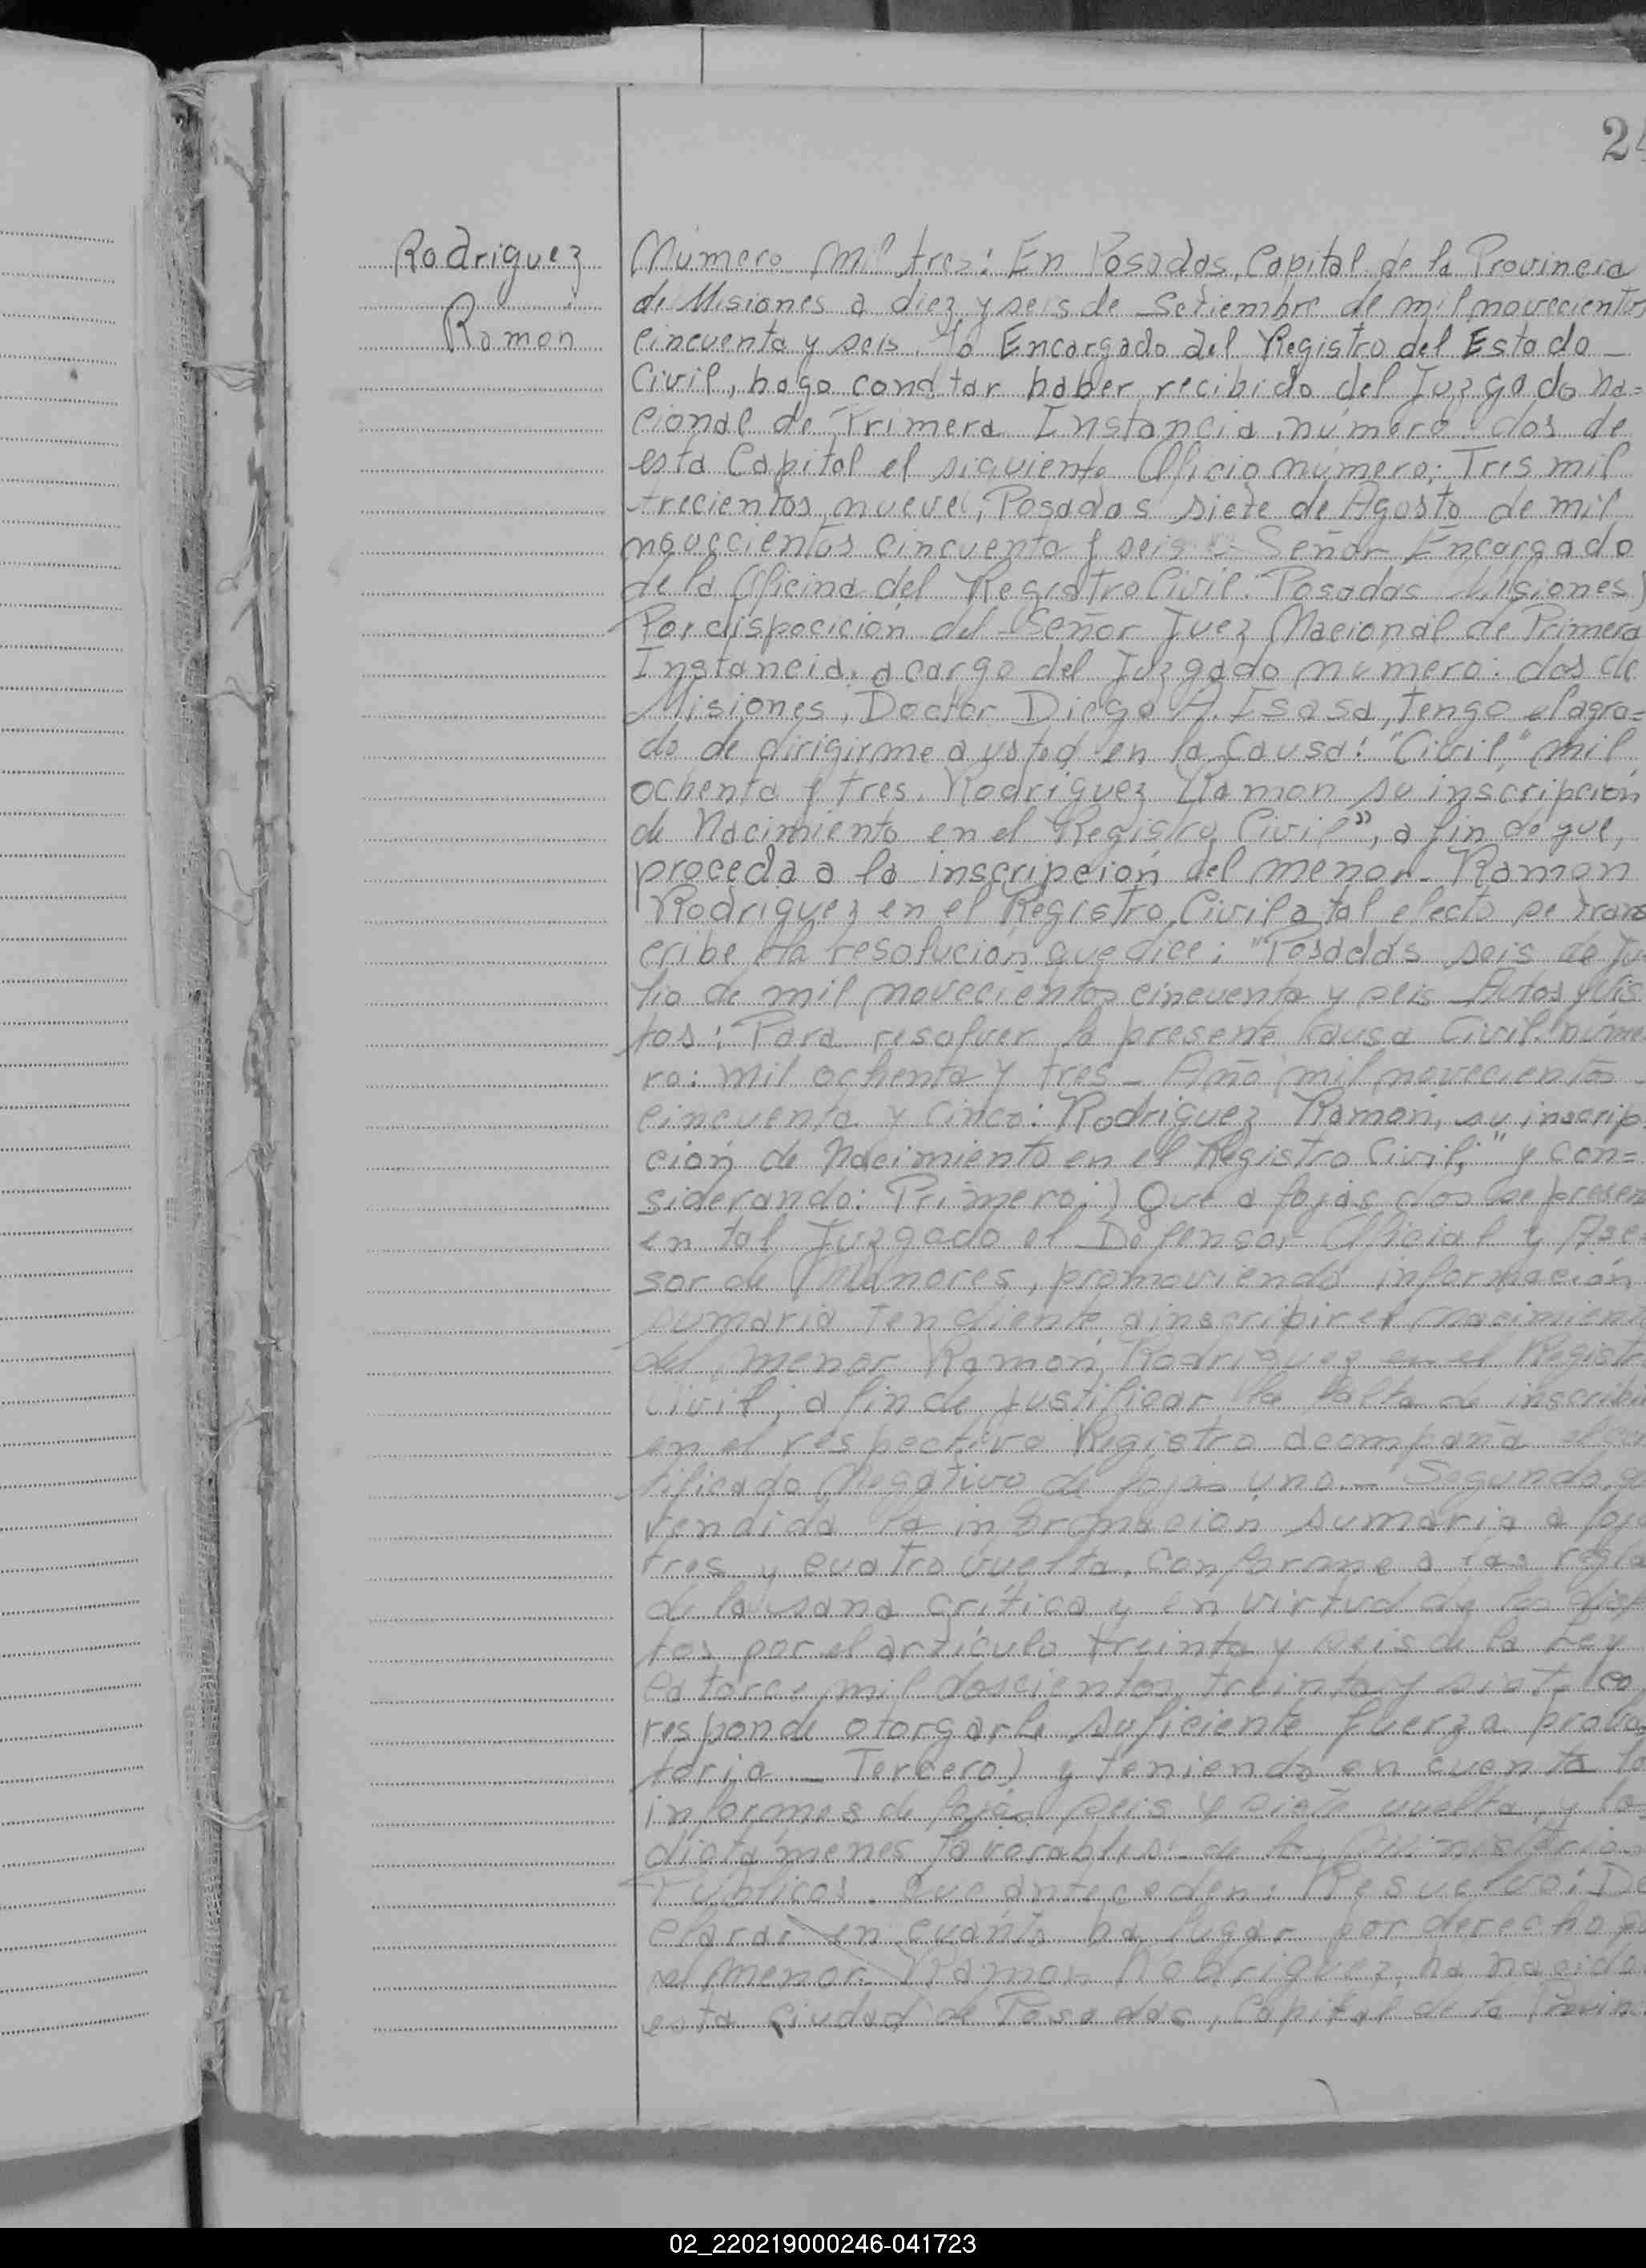 24
Rodriguez
Ramon
Número mil tres: En Posadas, Capital de la Provincia
de Misiones a diez y seis de Setiembre de mil novecientos
cincuenta y seis. Yo Encargado del Registro del Estado
Civil, hago constar haber recibido del Juzgado Na=
cional de Primera Instancia número: dos de
esta Capital el siguiente Oficio número: Tres mil
trecientos nueve; Posadas siete de Agosto de mil
novecientos cincuenta y seis Señor Encargado
de la Oficina del Registro Civil: Posadas Misiones)
Por disposicion del Señor Juez Nacional de Primera
Instancia, a cargo del Juzgado número: dos de
Misiones, Doctor Diego A. Isasa, tengo el agra=
do de dirigirme a usted en la Causa: "Civil" mil
ochenta y tres. Rodriguez Ramon su inscripción
de Nacimiento en el Registro Civil", a fin de que,
proceda a la inscripción del menor Ramon
Rodriguez en el Registro Civil a tal efecto se trans
cribe la resolucion que dice: "Posadas seis de Ju
lio de mil novecientos cincuenta y seis Autos y Vis
tos: Para resolver la presente Causa Civil núme
ro: mil ochenta y tres - Año mil novecientos
cincuenta y cinco: Rodriguez Ramon, su inscrip
ción de Nacimiento en el Registro Civil;" y Con=
siderando: Primero:) Que a fojas dos se presen
en tal Juzgado el Defensor Oficial y Ase
sor de Menores, promoviendo información
sumaria tendiente a inscribir el nacimien
del menor Ramon Rodriguez en el Registr
Civil; a fin de justificar la falta de inscribi
en el respectivo Registro acompaña el cer
tificado Negativo de fojas uno.- Segundo, q
rendida la informacion sumaria a foj
tres y cuatro vuelta, conforme a las regla
de la sana crítica y en virtud de lo disp
tos por el artículo treinta y seis de la Ley
catorce mil doscientos treinta y siete co
responde otorgarle suficiente fuerza proba
toria - Tercero) y teniendo en cuenta lo
informes de fojas seis y siete vuelta, y lo
dictámenes favorables de lo Ministerio
Públicos, que anteceden: Resuelvo: De
clarar en cuánto ha lugar por derecho q
el menor Ramon Rodriguez, ha nacido
esta Ciudad de Posadas, Capital de la Provin
02_220219000246-041723